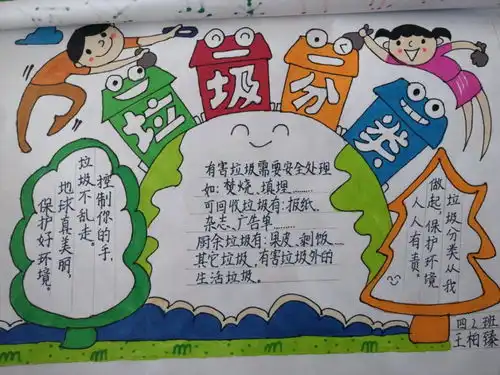 垃圾分类
控制你的手,
垃圾不乱走。
地球真美丽,
保护好环境。
有害垃圾需要安全处理
如:焚烧、填埋………
可回收垃圾有:报纸、
杂志、广告单………
厨余垃圾有:果皮、剩饭…
其它垃圾,有害垃圾外的
生活垃圾。
垃圾分类从我
做起,保护环境
人人有责。
四2班
王柏臻